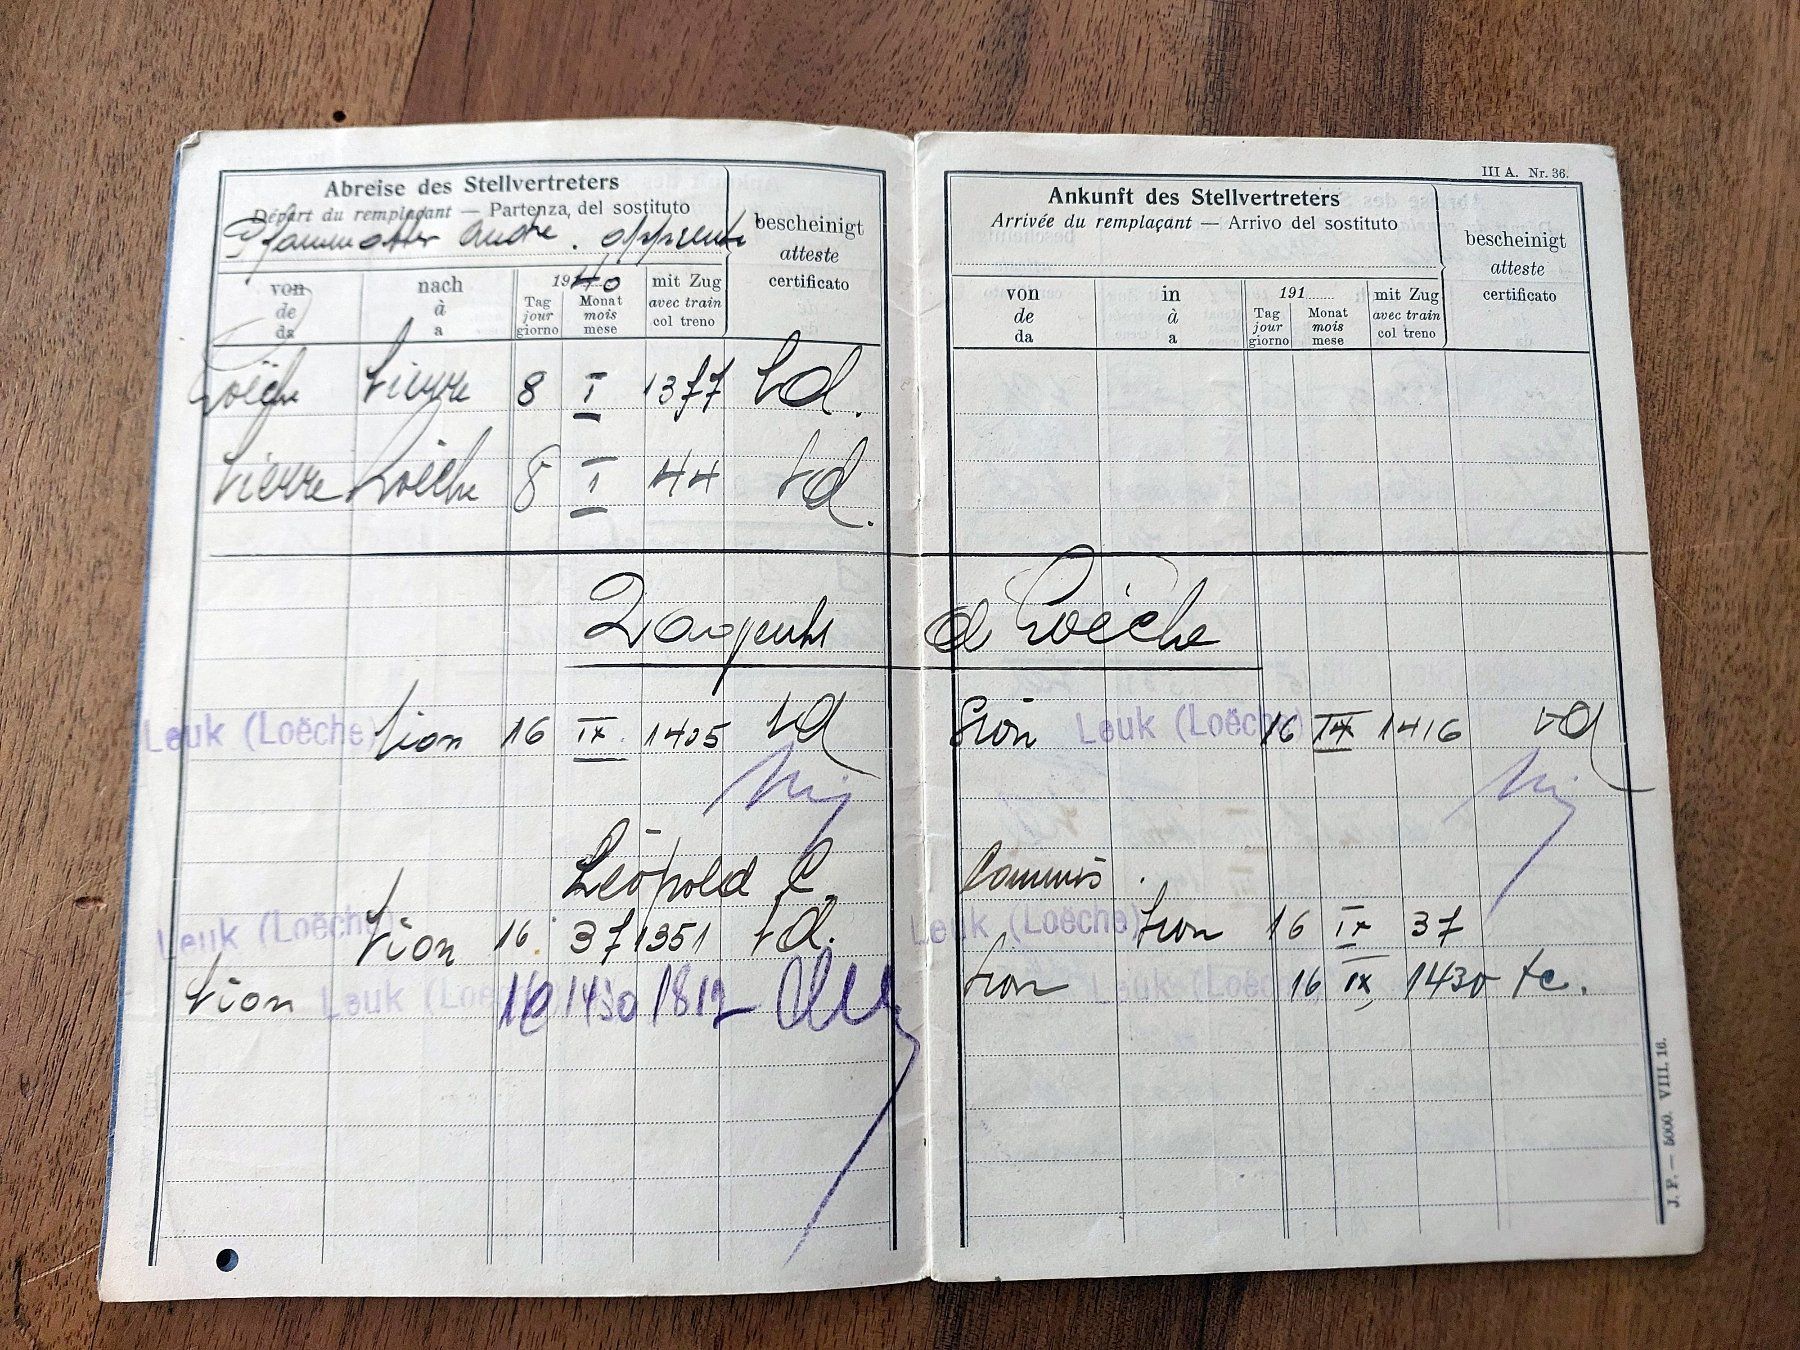 Abreise des Stellvertreters
Départ du remplaçant — Partenza del sostituto
André.
bescheinigt
atteste
certificato
von
de
da
nach
à
a
1940
Tag
jour
giorno
Monat
mois
mese
mit Zug
avec train
col treno
Loèche Sierre 8 I 1377
Sierre Loèche 8 I 44
2 agents
Leuk (Loèche) Sion 16 IX 1405
Léopold C.
Leuk (Loèche) Sion 16 37 1351
Sion Leuk (Loèche) 16 1430 1812
III A. Nr. 36.
Ankunft des Stellvertreters
Arrivée du remplaçant — Arrivo del sostituto
bescheinigt
atteste
certificato
von
de
da
in
à
a
191......
Tag
jour
giorno
Monat
mois
mese
mit Zug
avec train
col treno
d Loèche
Sion Leuk (Loèche) 16 IX 1416
Commis.
Leuk (Loèche) Sion 16 IX 37
Sion Leuk (Loèche) 16 IX 1430
J. F. — 5000. VIII. 16.